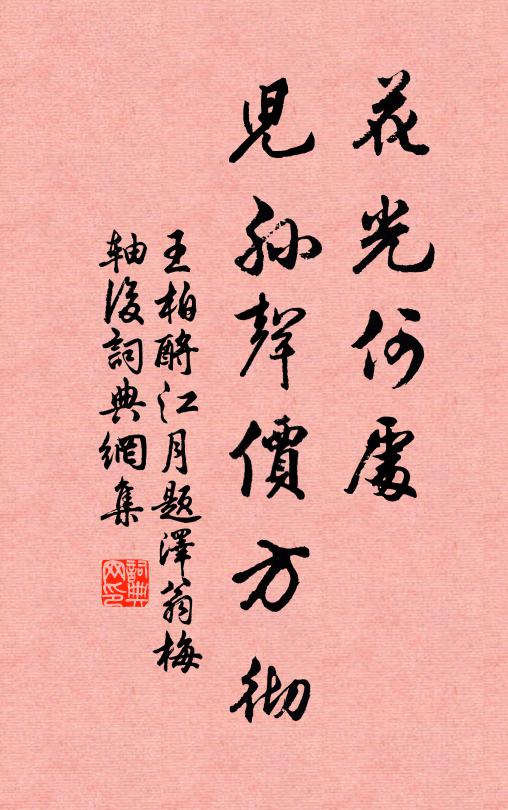 花光何處
兒孫聲價方彻
王柏酹江月题澤翁梅
軸後詞典網集
詞典网印